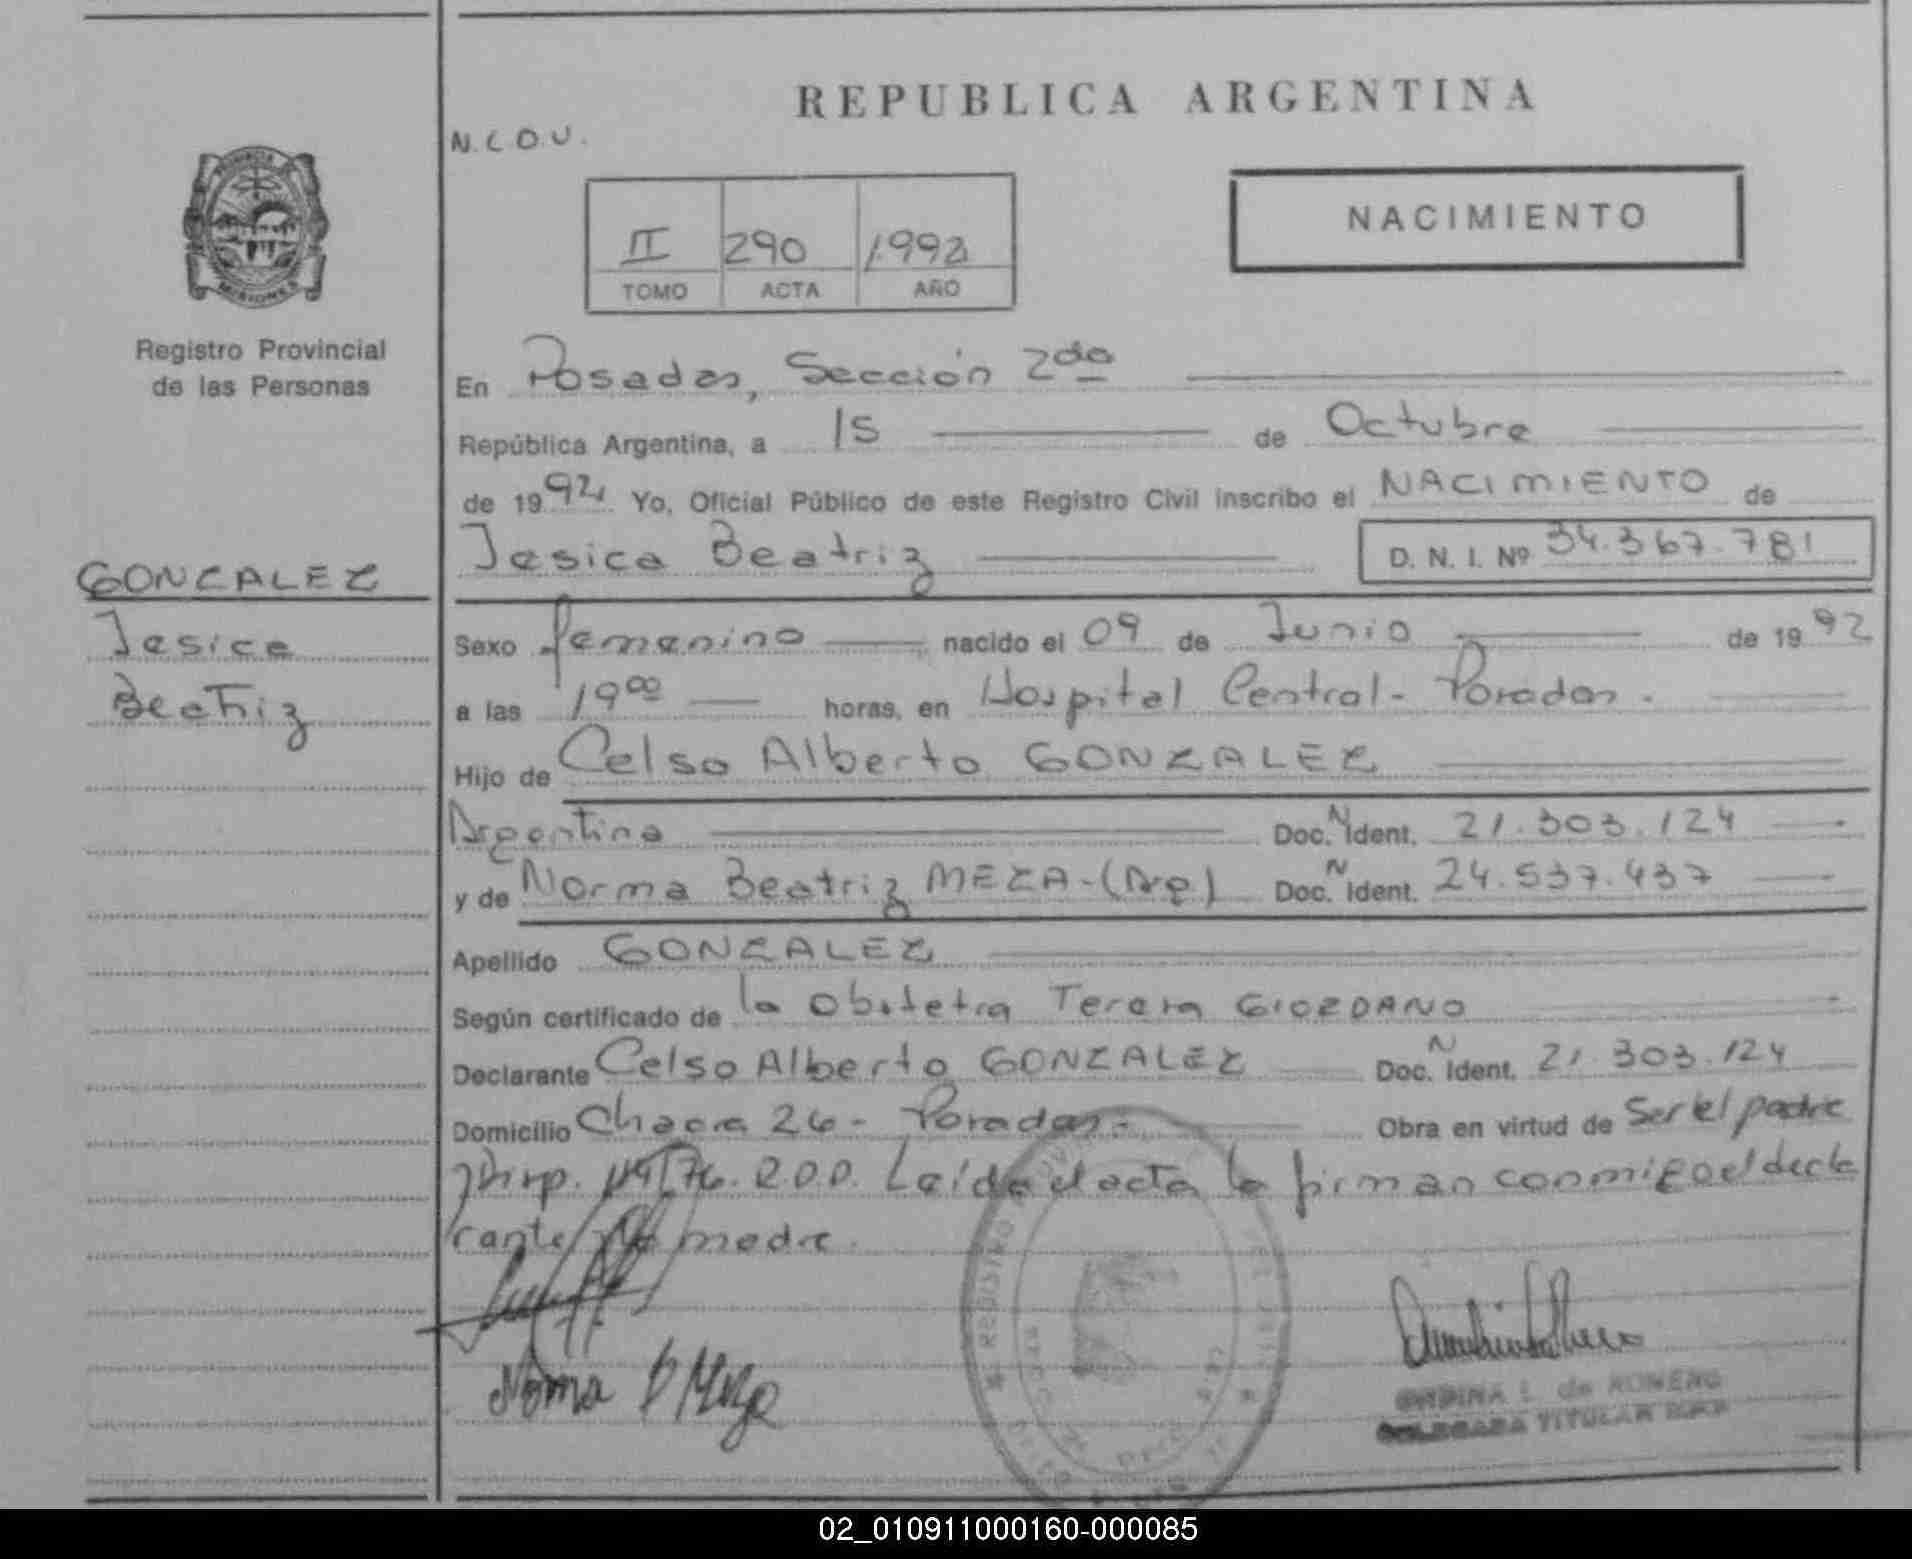 REPUBLICA ARGENTINA
N.C.O.U.
NACIMIENTO
II 290 1.992
TOMO ACTA AÑO
PROVINCIA
MISIONES
Registro Provincial
de las Personas
GONZALEZ
Jesica
Beatriz
En Posadas, Sección 2da
República Argentina, a 15 de Octubre
de 1992 Yo, Oficial Público de este Registro Civil inscribo el NACIMIENTO de
Jesica Beatriz D. N. I. Nº 34.367.781
Sexo femenino nacido el 09 de Junio de 1992
a las 19 00 horas, en Hospital Central - Posadas.
Hijo de Celso Alberto GONZALEZ
Argentina Doc. N Ident. 21.303.124
y de Norma Beatriz MEZA - (Arg.) Doc. N Ident. 24.537.437
Apellido GONZALEZ
Según certificado de la Obstetra Teresa GIORDANO
Declarante Celso Alberto GONZALEZ Doc. N Ident. 21.303.124
Domicilio Chacra 26 - Posadas.- Obra en virtud de Ser el padre
y Disp. 114/76. R.O.D. Leída el acta la firman conmigo el decla
rante y la madre.
Norma B Meza
L. de ROMERO
TITULAR
02_010911000160-000085